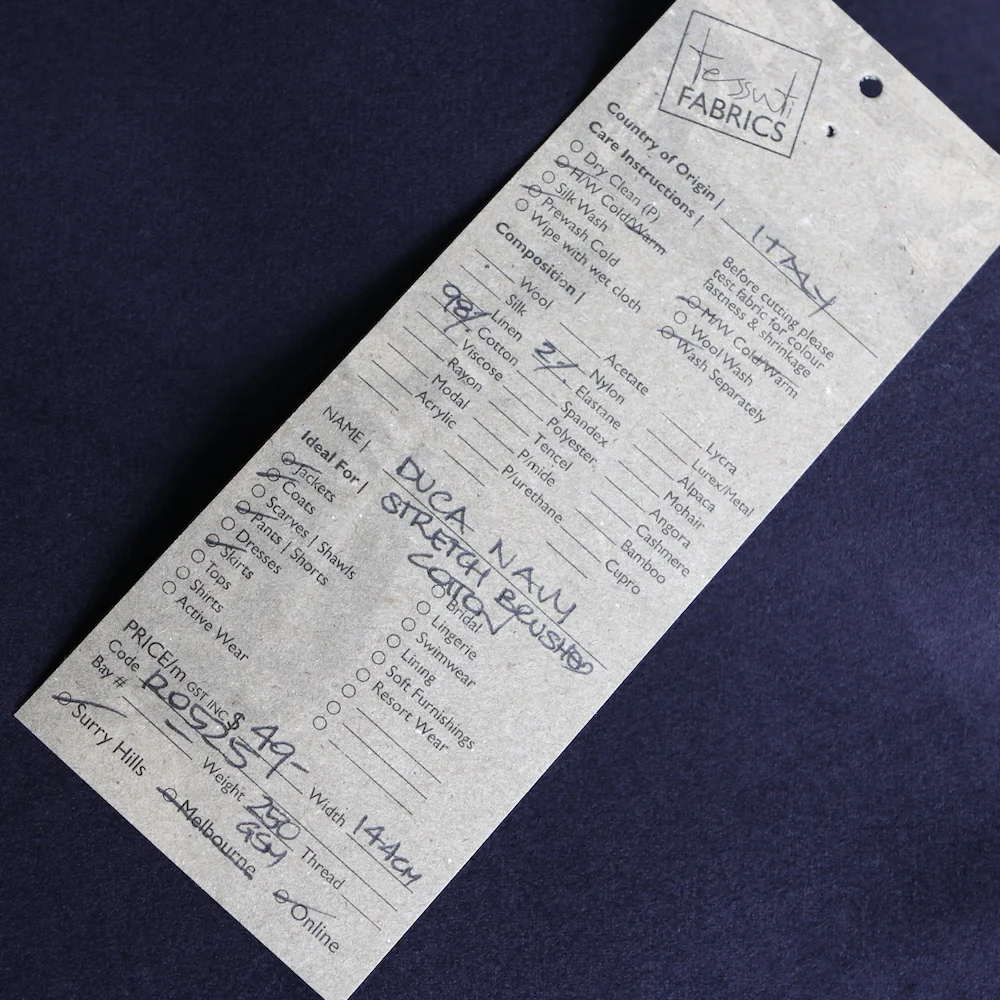 tessuti
FABRICS
Country of Origin | ITALY
Care Instructions |
Dry Clean (P)
H/W Cold/Warm
Silk Wash
Prewash Cold
Wipe with wet cloth
Before cutting please
test fabric for colour
fastness & shrinkage
M/W Cold/Warm
Wool Wash
Wash Separately
Composition |
Wool
Silk
Linen
98% Cotton
Viscose
Rayon
Modal
Acrylic
Acetate
Nylon
2% Elastane
Spandex
Polyester
Tencel
P/mide
P/urethane
Lycra
Lurex/Metal
Alpaca
Mohair
Angora
Cashmere
Bamboo
Cupro
NAME | DUCA NAVY
STRETCH BRUSHED
COTTON
Ideal For |
Jackets
Coats
Scarves | Shawls
Pants | Shorts
Dresses
Skirts
Tops
Shirts
Active Wear
Bridal
Lingerie
Swimwear
Lining
Soft Furnishings
Resort Wear
PRICE/m GST INC $ 49-
Code R0525 Width 144CM
Bay # Weight 250 GSM Thread
Surry Hills
Melbourne
Online